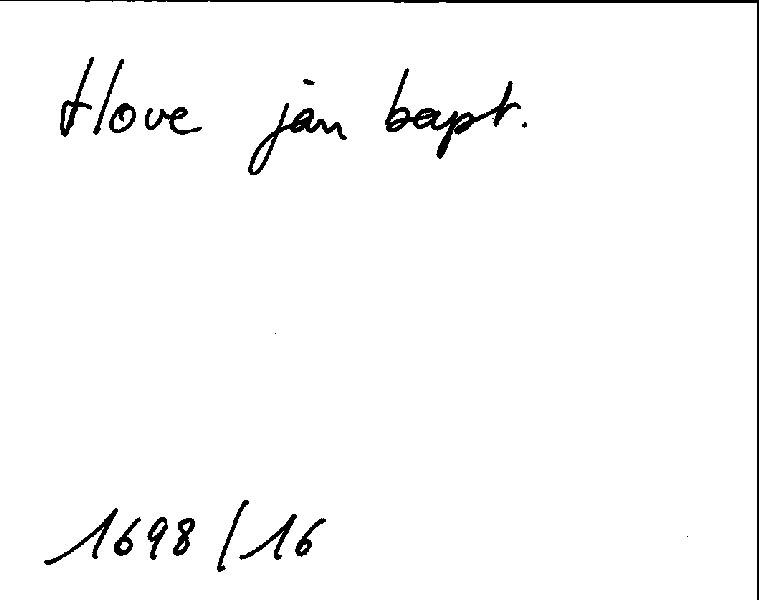 Hove jan bapt.
1698/16